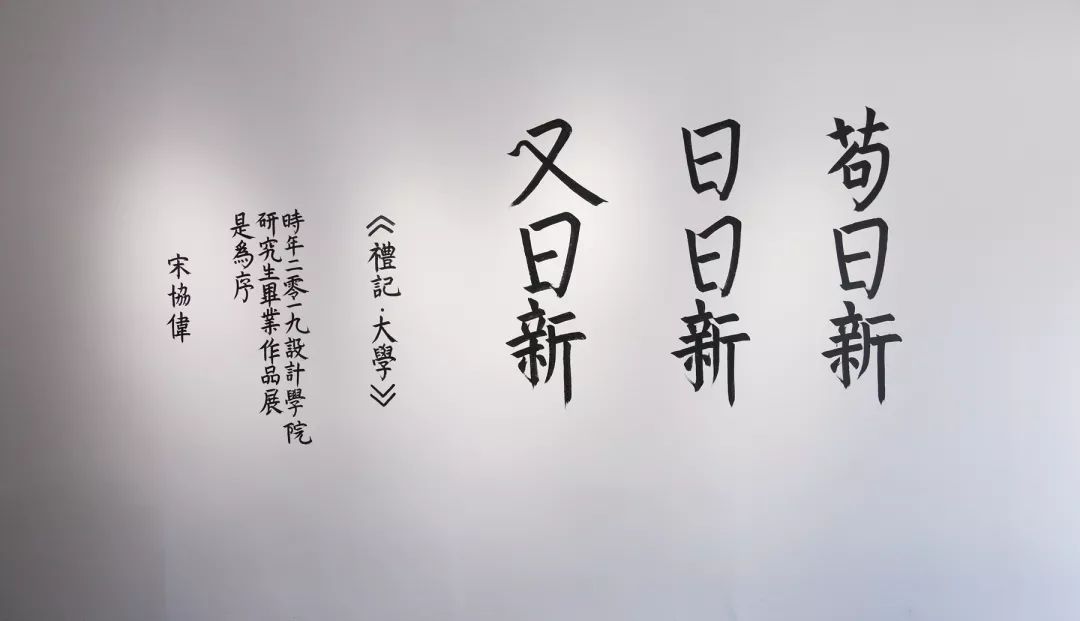 苟日新
日日新
又日新
《禮記·大學》
時年二零一九設計學院
研究生畢業作品展
是為序
宋協偉